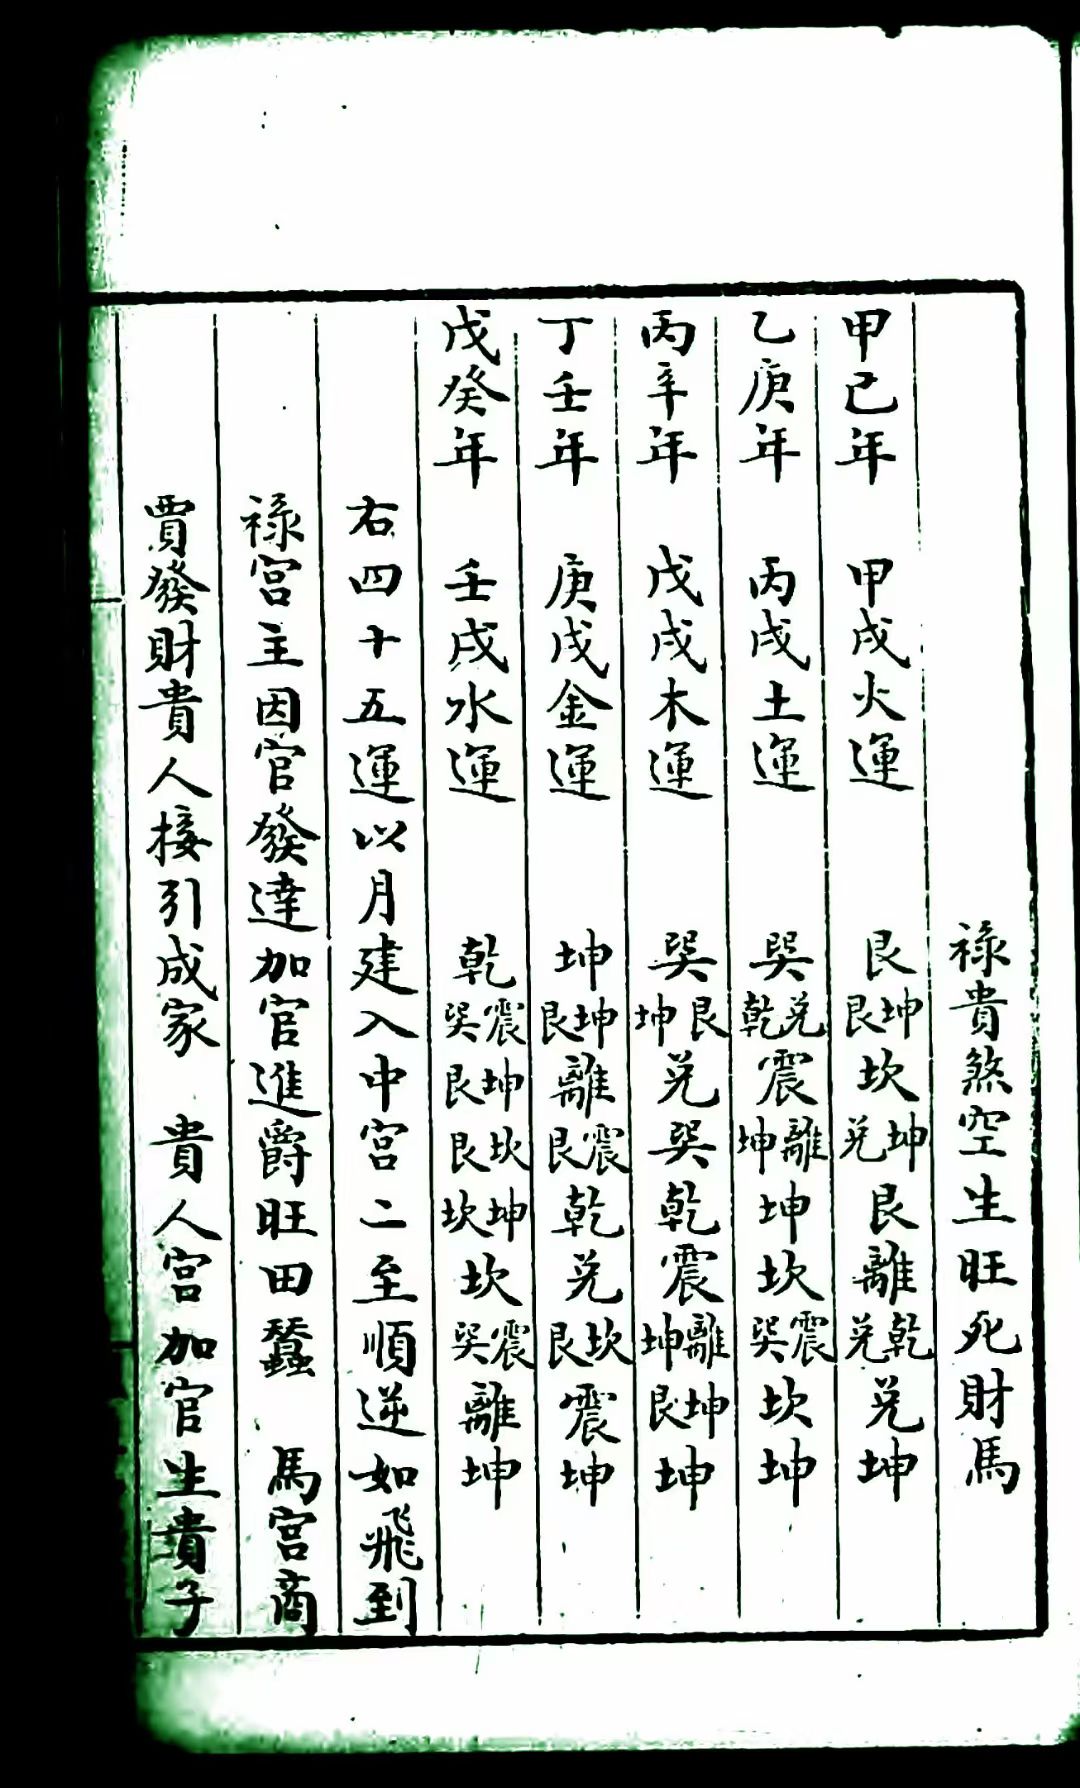 祿貴煞空生旺死財馬
甲己年 甲戌火運 艮坤艮坎坤兌艮離乾兌兌坤
乙庚年 丙戌土運 巽兌乾震離坤坤坎震巽坎坤
丙辛年 戊戌木運 巽艮坤兌巽乾震離坤坤艮坤
丁壬年 庚戌金運 坤坤艮離震艮乾兌坎艮震坤
戊癸年 壬戌水運 乾震巽坤艮坎艮坤坎坎震巽離坤
右四十五運以月建入中宮二至順逆如飛到
祿宮主因官發達加官進爵旺田蠶 馬宮商
賈發財貴人接引成家 貴人宮加官生貴子